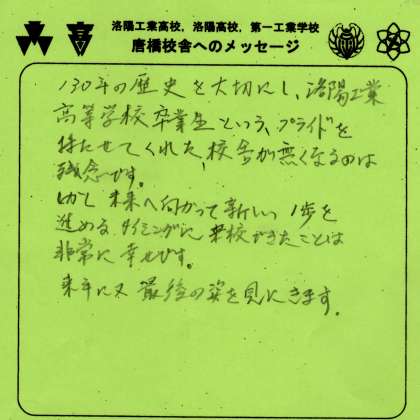 洛陽工業高校, 洛陽高校, 第一工業学校
唐橋校舎へのメッセージ
130年の歴史を大切にし、洛陽工業
高等学校卒業生という、プライドを
持たせてくれた、校舎が無くなるのは
残念です。
しかし 未来へ向かって新しい 1歩を
進める タイミングに 来校できたことは
非常に幸せです。
来年に又 最後の姿を見にきます。